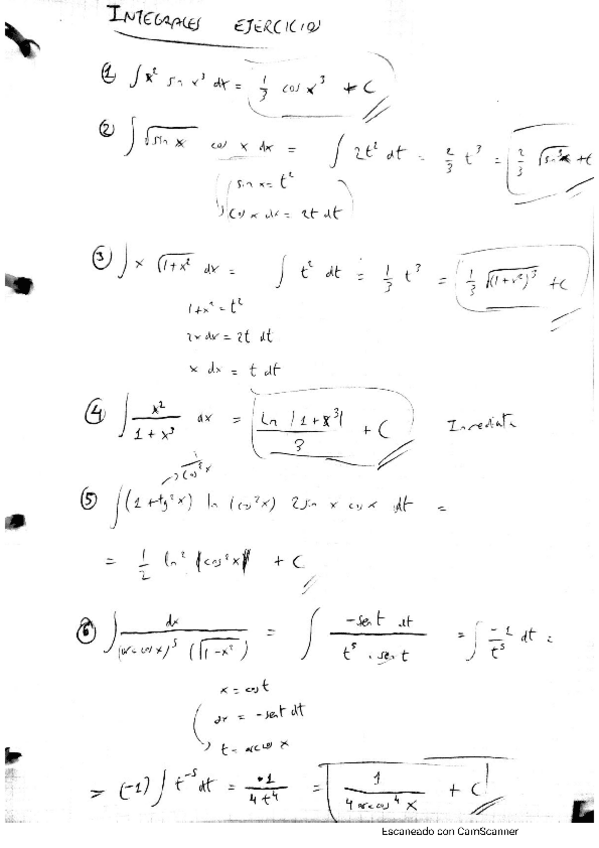 INTEGRALES EJERCICIOS
① ∫x² sin x³ dx = 1/3 cos x³ + C
② ∫√(sin x) cos x dx = ∫ 2t² dt = 2/3 t³ = 2/3 √(sin³x) + C
sin x = t²
cos x dx = 2t dt
③ ∫x √(1+x²) dx = ∫ t² dt = 1/3 t³ = 1/3 √((1+x²)³) + C
1+x² = t²
2x dx = 2t dt
x dx = t dt
④ ∫ x²/(1+x³) dx = ln |1+x³|/3 + C Inmediata
→ 1/cos²x
⑤ ∫(1+tg²x) ln (cos²x) 2sin x cos x dt =
= 1/2 ln² |cos²x| + C
⑥ ∫ dx/((arccos x)⁵ (√(1-x²))) = ∫ -sen t dt/(t⁵ · sen t) = ∫ -1/t⁵ dt =
x = cos t
dx = -sen t dt
t = arccos x
= (-1) ∫ t⁻⁵ dt = 1/(4t⁴) = 1/(4 arccos⁴ x) + C
Escaneado con CamScanner